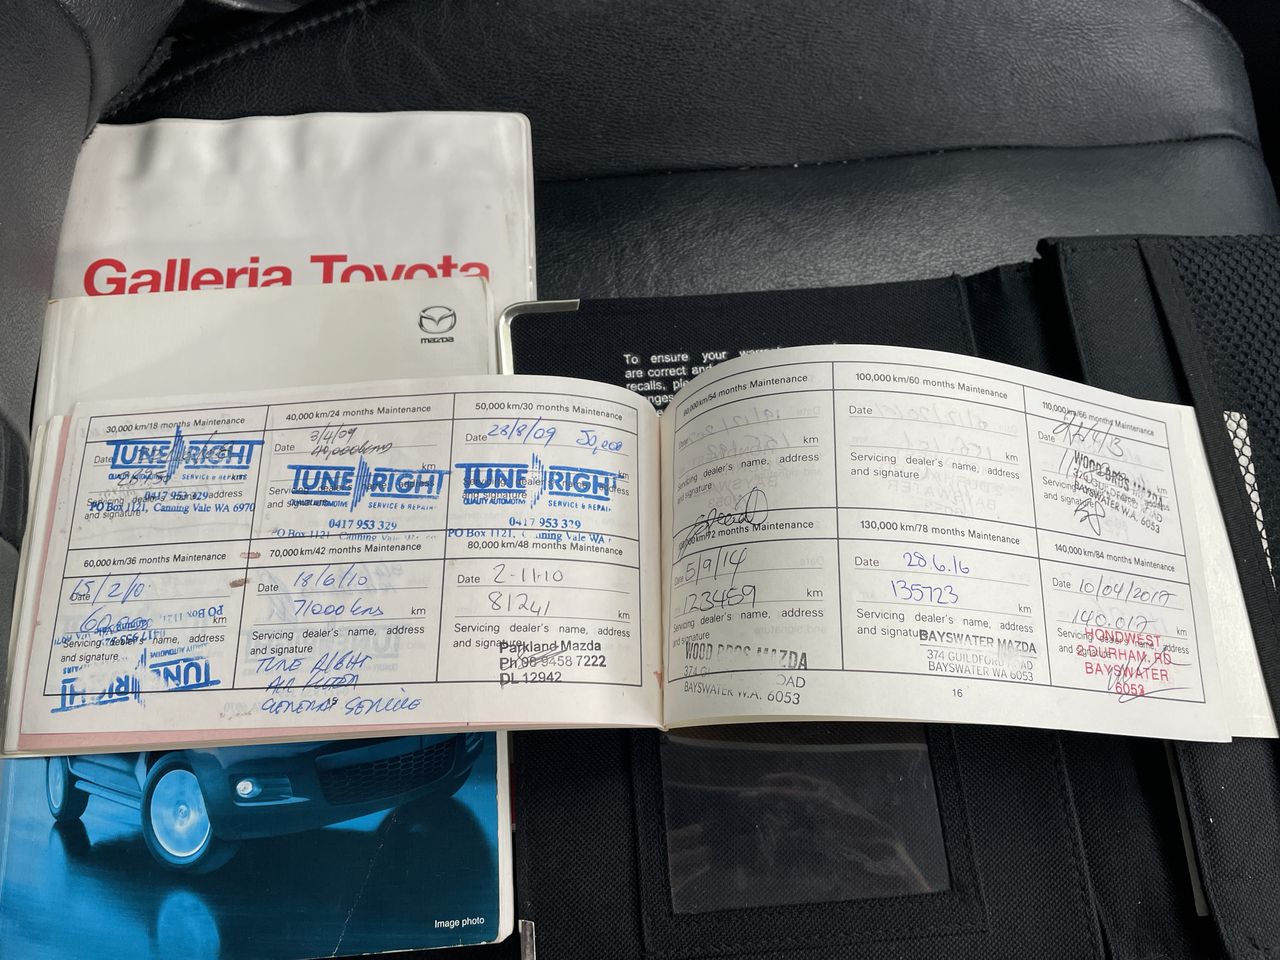 Galleria Toyota
mazda
To ensure your
are correct and
recalls,
30,000 km/18 months Maintenance
Date
TUNE RIGHT
QUALITY AUTOMOTIVE SERVICE & REPAIR
Servicing dealer's name, address
and signature
0417 953 329
PO Box 1121, Canning Vale WA 6970
40,000 km/24 months Maintenance
Date 3/4/09
40,000km
km
TUNE RIGHT
Servicing dealer's name, address
and signature
SERVICE & REPAIR
0417 953 329
PO Box 1121, Canning Vale WA
50,000 km/30 months Maintenance
Date 28/8/09 50,000
km
TUNE RIGHT
QUALITY AUTOMOTIVE SERVICE & REPAIR
0417 953 329
PO Box 1121, Canning Vale WA
60,000 km/36 months Maintenance
Date
km
Servicing dealer's name, address
and signature
PO Box 1121,
TUNE RIGHT
70,000 km/42 months Maintenance
Date 18/6/10
71000kms km
Servicing dealer's name, address
and signature
TUNE RIGHT
AIR FILTER
GENERAL SERVICE
80,000 km/48 months Maintenance
Date 2-11-10
81241 km
Servicing dealer's name, address
and signature
Parkland Mazda
Ph 08 9458 7222
DL 12942
15
90,000 km/54 months Maintenance
Date
km
Servicing dealer's name, address
and signature
100,000 km/60 months Maintenance
Date
km
Servicing dealer's name, address
and signature
110,000 km/66 months Maintenance
WOOD BROS MAZDA
374 GUILDFORD ROAD
BAYSWATER W.A. 6053
Servicing dealer's name, address
and signature
months Maintenance
Date 5/9/14
123459 km
Servicing dealer's name, address
and signature
WOOD BROS MAZDA
374 G OAD
BAYSWATER W.A. 6053
130,000 km/78 months Maintenance
Date 28.6.16
135723 km
Servicing dealer's name, address
and signature
BAYSWATER MAZDA
374 GUILDFORD ROAD
BAYSWATER WA 6053
140,000 km/84 months Maintenance
Date 10/04/2017
140.017 km
Servicing dealer's name, address
and signature
HONDWEST
2 DURHAM. RD
BAYSWATER
6053
16
Image photo